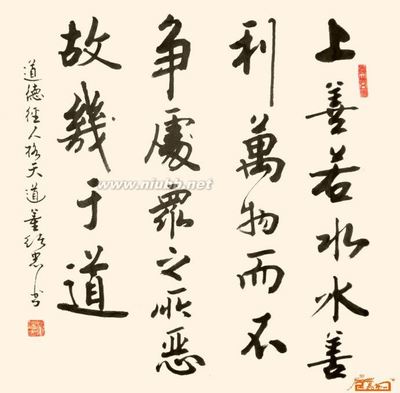 上善若水水善
利萬物而不
争處眾之所惡
故幾于道
道德經人格天道董书
www.niubb.net